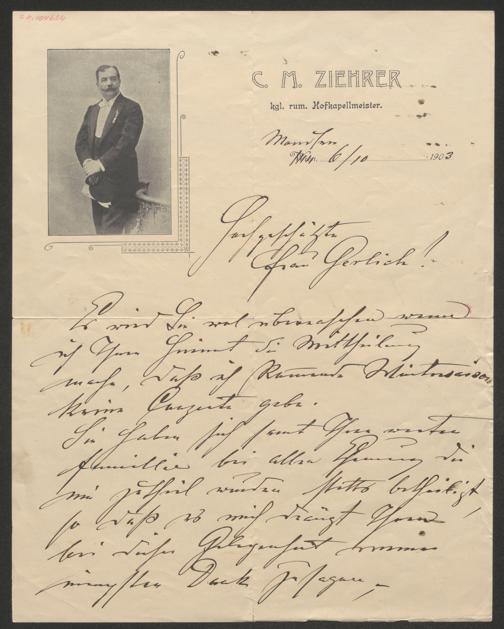 C. M. ZIEHRER
kgl. rum. Hofkapellmeister.
München
Wien 6/10 1903
Hochgeschätzte
Frau Gerlich!
Es wird Sie wol überraschen wenn
ich Ihnen hiemit die Mittheilung
mache, daß ich kommende Wintersaison
keine Conzerte gebe.
Sie haben sich samt Ihrer werten
Familie bei allen Ehrungen die
mir zutheil wurden stetts betheiligt,
so daß es mich drängt Ihnen
bei dieser Gelegenheit meinen
innigsten Dank zu sagen,